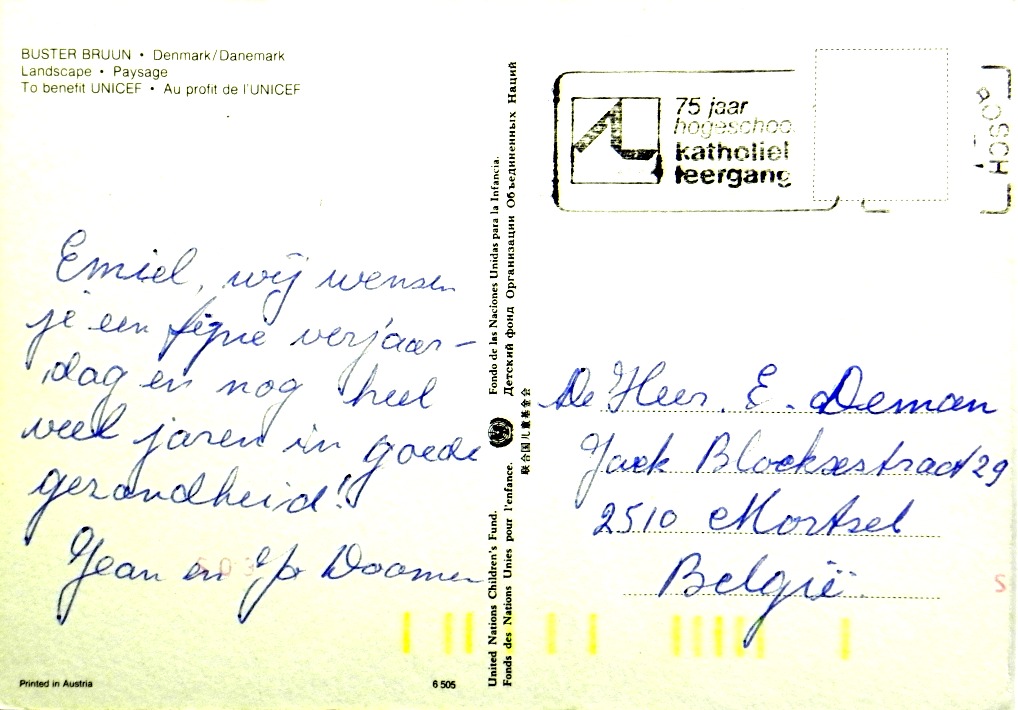 BUSTER BRUUN • Denmark/Danemark
Landscape • Paysage
To benefit UNICEF • Au profit de l'UNICEF
Emiel, wij wensen
je een fijne verjaar-
dag en nog heel
veel jaren in goede
gezondheid!
Jean en Jo Doomen
Printed in Austria
6 505
United Nations Children's Fund.
Fonds des Nations Unies pour l'enfance.
Fondo de las Naciones Unidas para la Infancia.
Детский фонд Организации Объединенных Наций
联合国儿童基金会
75 jaar
hogeschool
katholieke
leergang
De Heer E. Deman
Jack Blockxstraat 29
2510 Mortsel
België